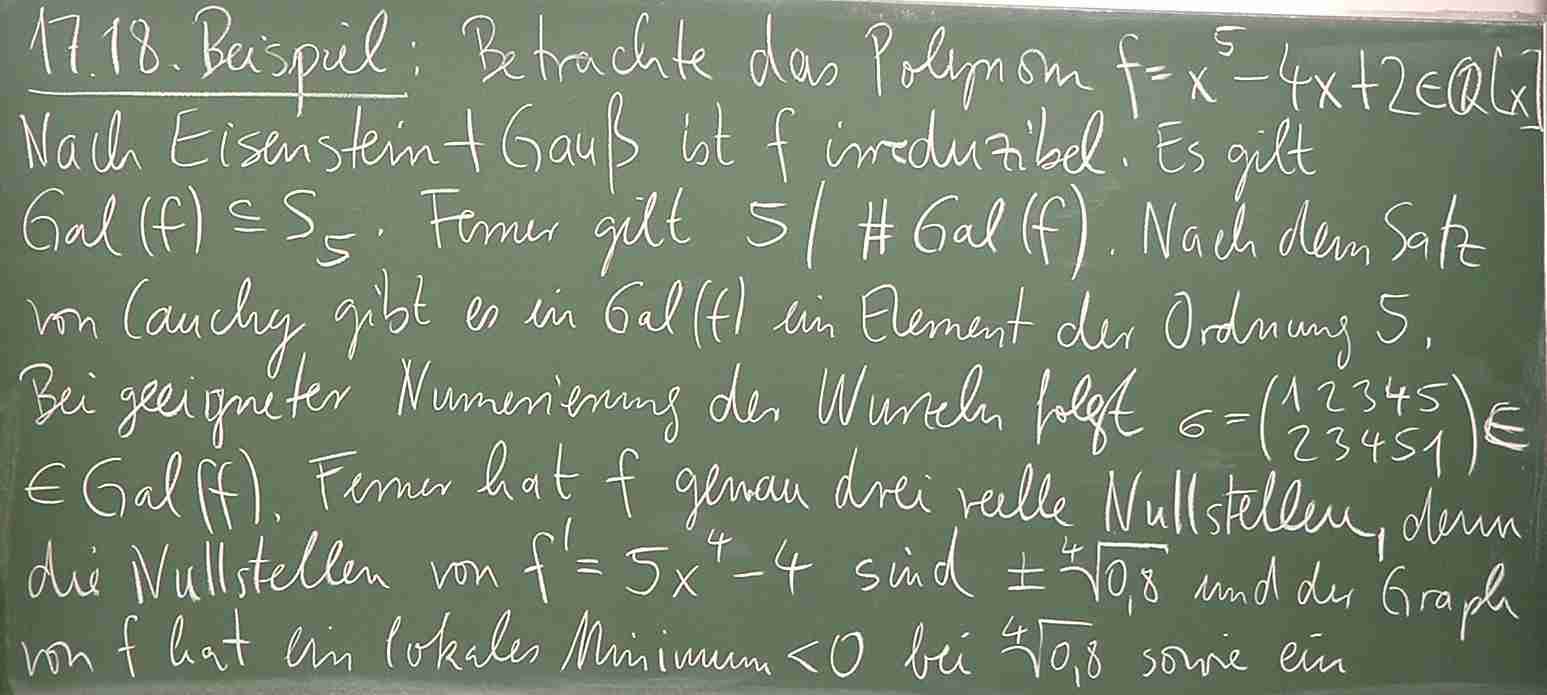 17.18. Beispiel: Betrachte das Polynom f = x⁵ - 4x + 2 ∈ ℚ[x]
Nach Eisenstein + Gauß ist f irreduzibel. Es gilt
Gal(f) ⊆ S₅. Ferner gilt 5 | # Gal(f). Nach dem Satz
von Cauchy gibt es in Gal(f) ein Element der Ordnung 5.
Bei geeigneter Numerierung der Wurzeln folgt σ = (1 2 3 4 5 / 2 3 4 5 1) ∈
∈ Gal(f). Ferner hat f genau drei reelle Nullstellen, denn
die Nullstellen von f' = 5x⁴ - 4 sind ± ⁴√0,8 und der Graph
von f hat ein lokales Minimum < 0 bei ⁴√0,8 sowie ein